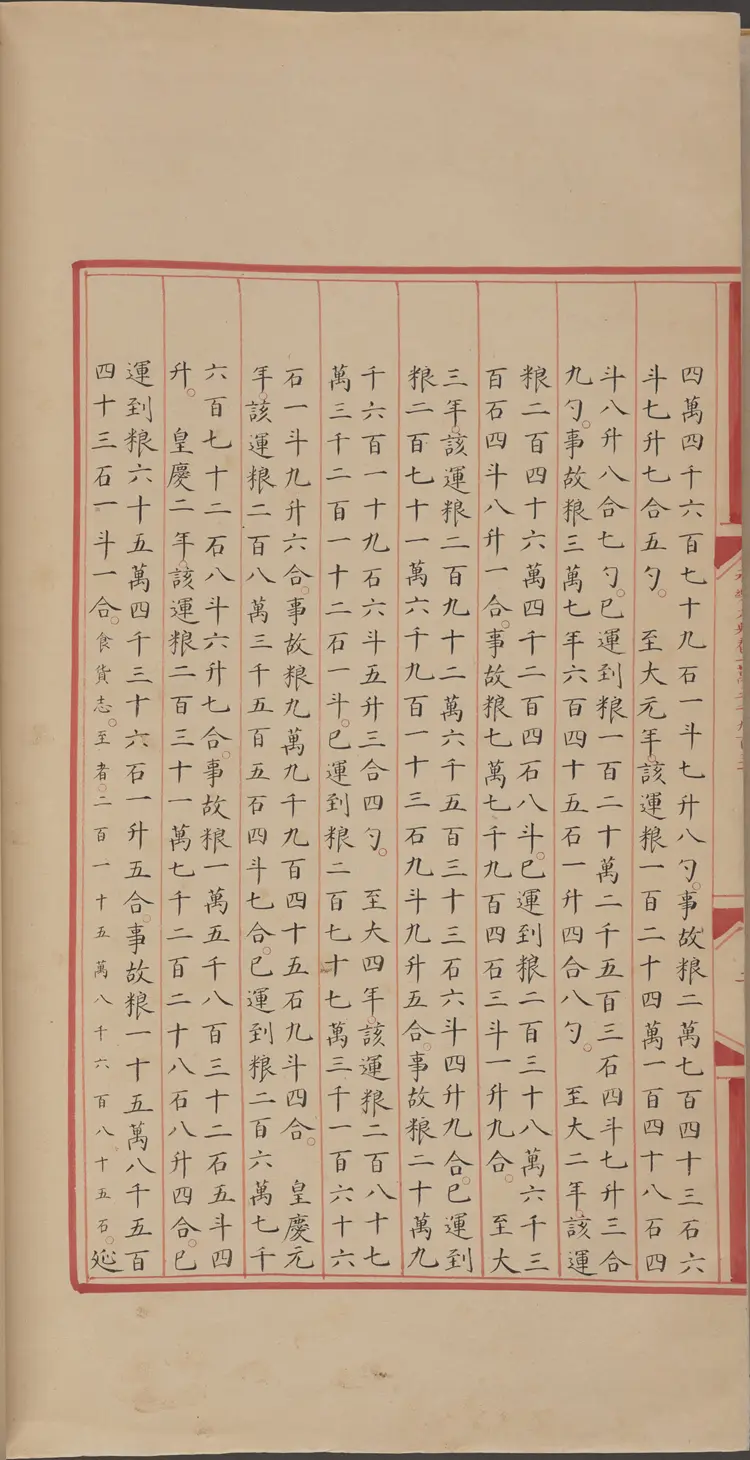 四萬四千六百七十九石一斗七升八勺。事故粮二萬七百四十三石六
斗七升七合五勺。　至大元年。該運粮一百二十四萬一百四十八石四
斗八升八合七勺。已運到粮一百二十萬二千五百三石四斗七升三合
九勺。事故粮三萬七年六百四十五石一升四合八勺。　至大二年。該運
粮二百四十六萬四千二百四石八斗。已運到粮二百三十八萬六千三
百石四斗八升一合。事故粮七萬七千九百四石三斗一升九合。　至大
三年。該運粮二百九十二萬六千五百三十三石六斗四升九合。已運到
粮二百七十一萬六千九百一十三石九斗九升五合。事故粮二十萬九
千六百一十九石六斗五升三合四勺。　至大四年。該運粮二百八十七
萬三千二百一十二石一斗。已運到粮二百七十七萬三千一百六十六
石一斗九升六合。事故粮九萬九千九百四十五石九斗四合。　皇慶元
年。該運粮二百八萬三千五百五石四斗七合。已運到粮二百六萬七千
六百七十二石八斗六升七合。事故粮一萬五千八百三十二石五斗四
升。　皇慶二年。該運粮二百三十一萬七千二百二十八石八升四合。已
運到粮六十五萬四千三十六石一升五合。事故粮一十五萬八千五百
四十三石一斗一合。食貨志。至者。二百一十五萬八千六百八十五石。延